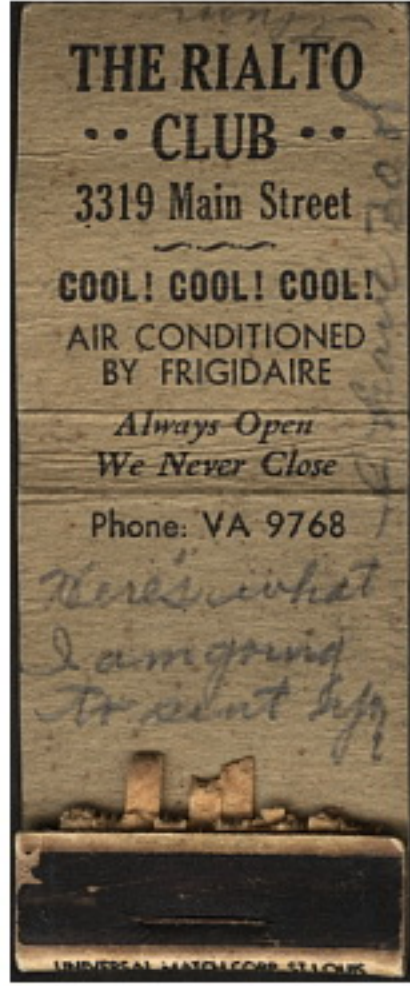 THE RIALTO
•• CLUB ••
3319 Main Street
COOL! COOL! COOL!
AIR CONDITIONED
BY FRIGIDAIRE
Always Open
We Never Close
Phone: VA 9768
Here's what
I am going
to sent
UNIVERSAL MATCH CORP. ST. LOUIS